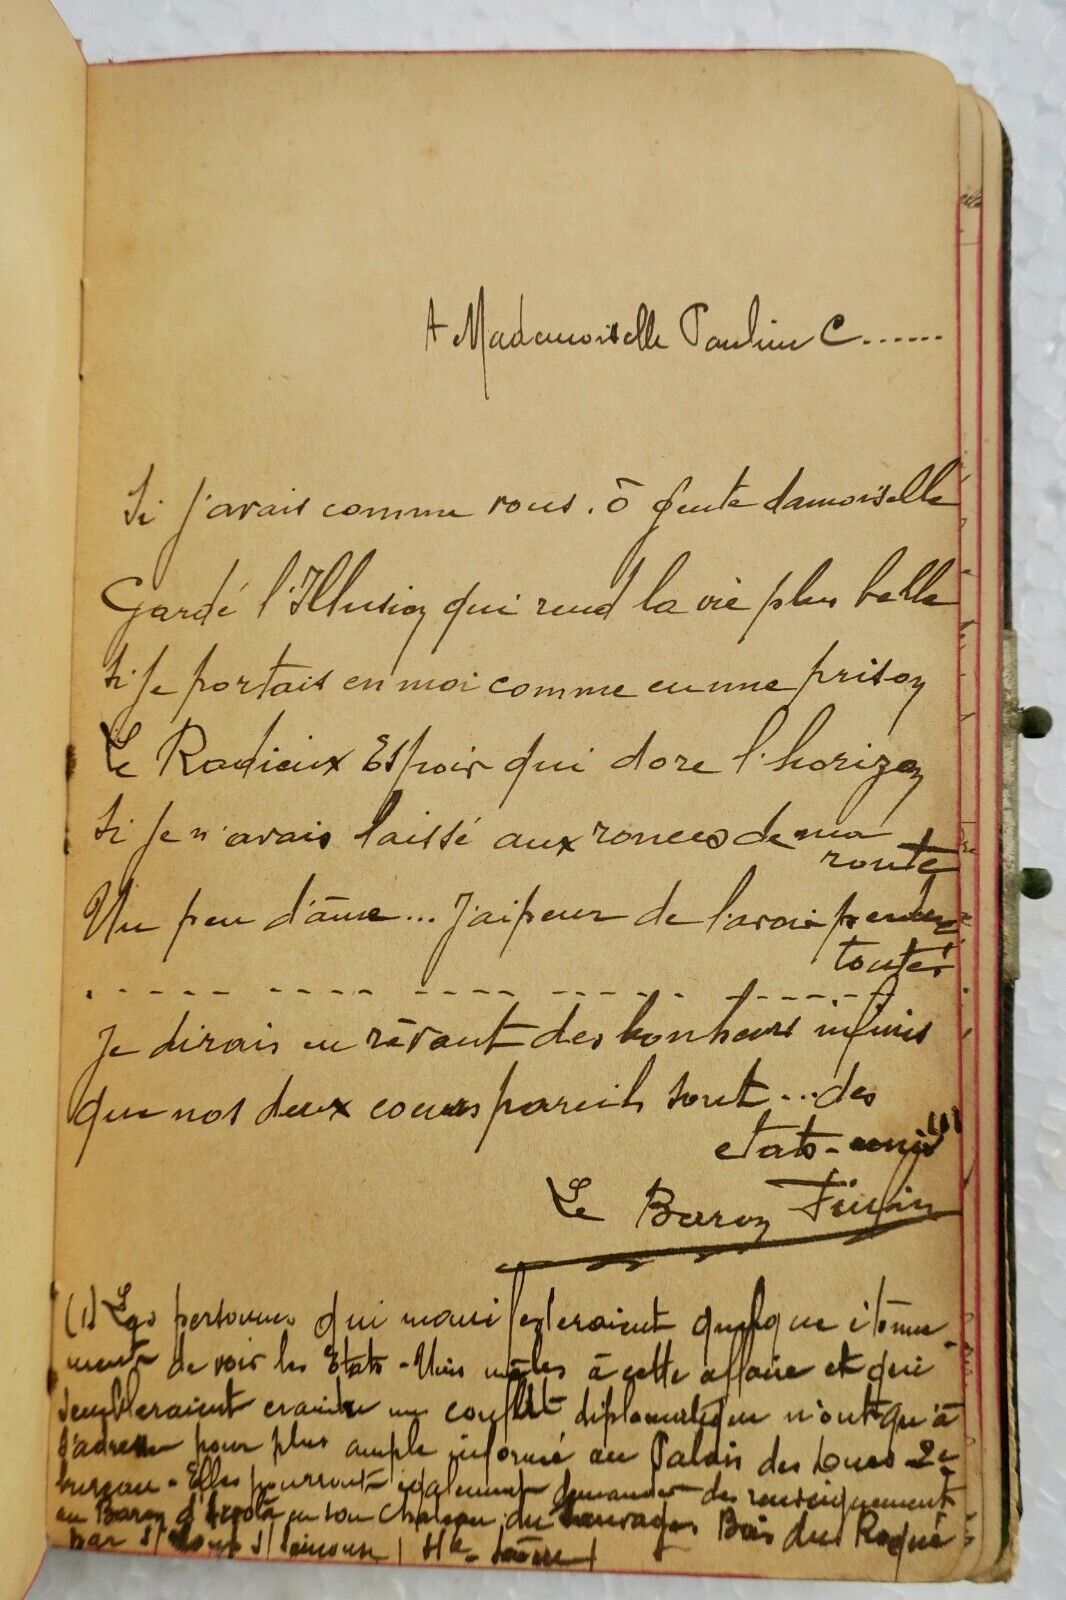 A Mademoiselle Pauline C.......
Si j'avais comme vous. ô gente damoiselle
Gardé l'Illusion qui rend la vie plus belle
Si je portais en moi comme en une prison
Le Radieux Espoir qui dore l'horizon
Si je n'avais laissé aux ronces de ma
route
Un peu d'âme... J'ai peur de l'avoir perdue
toute!
Je dirais en rêvant des bonheurs infinis
que nos deux coeurs pareils sont... des
etats-unis (1)
Le Baron
(1) Les personnes qui manifesteraient quelque étonne-
ment de voir les Etats-Unis mêlés à cette affaire et qui
sembleraient craindre un conflit diplomatique n'ont qu'à
s'adresser pour plus ample informé au Palais des 2e
bureau - Elles pourront également demander des renseignements
au Baron en son Chateau du Sauvage Bois du
par St Loup s/ Semouse (Hte-Saône)